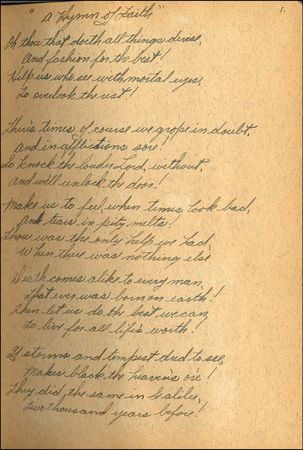 "A Hymn of Faith" 1.
Oh thou that doeth all things devise,
And fashion for the best!
Help us who see with mortal eyes,
To overlook the rest!
There's times of course we grope in doubt,
And in afflictions sore!
So knock the louder Lord, without,
And we'll unlock the door!
Make us to feel, when times look bad,
And tears in pity melts!
Thou was the only help we had,
When there was nothing else
Death comes alike to every man,
That ever was born on earth!
Then let us do the best we can,
to live for all life's worth!
If storms and tempest dred to see,
Makes black the heavens o're!
They did the same in Galilee,
Two thousand years before!